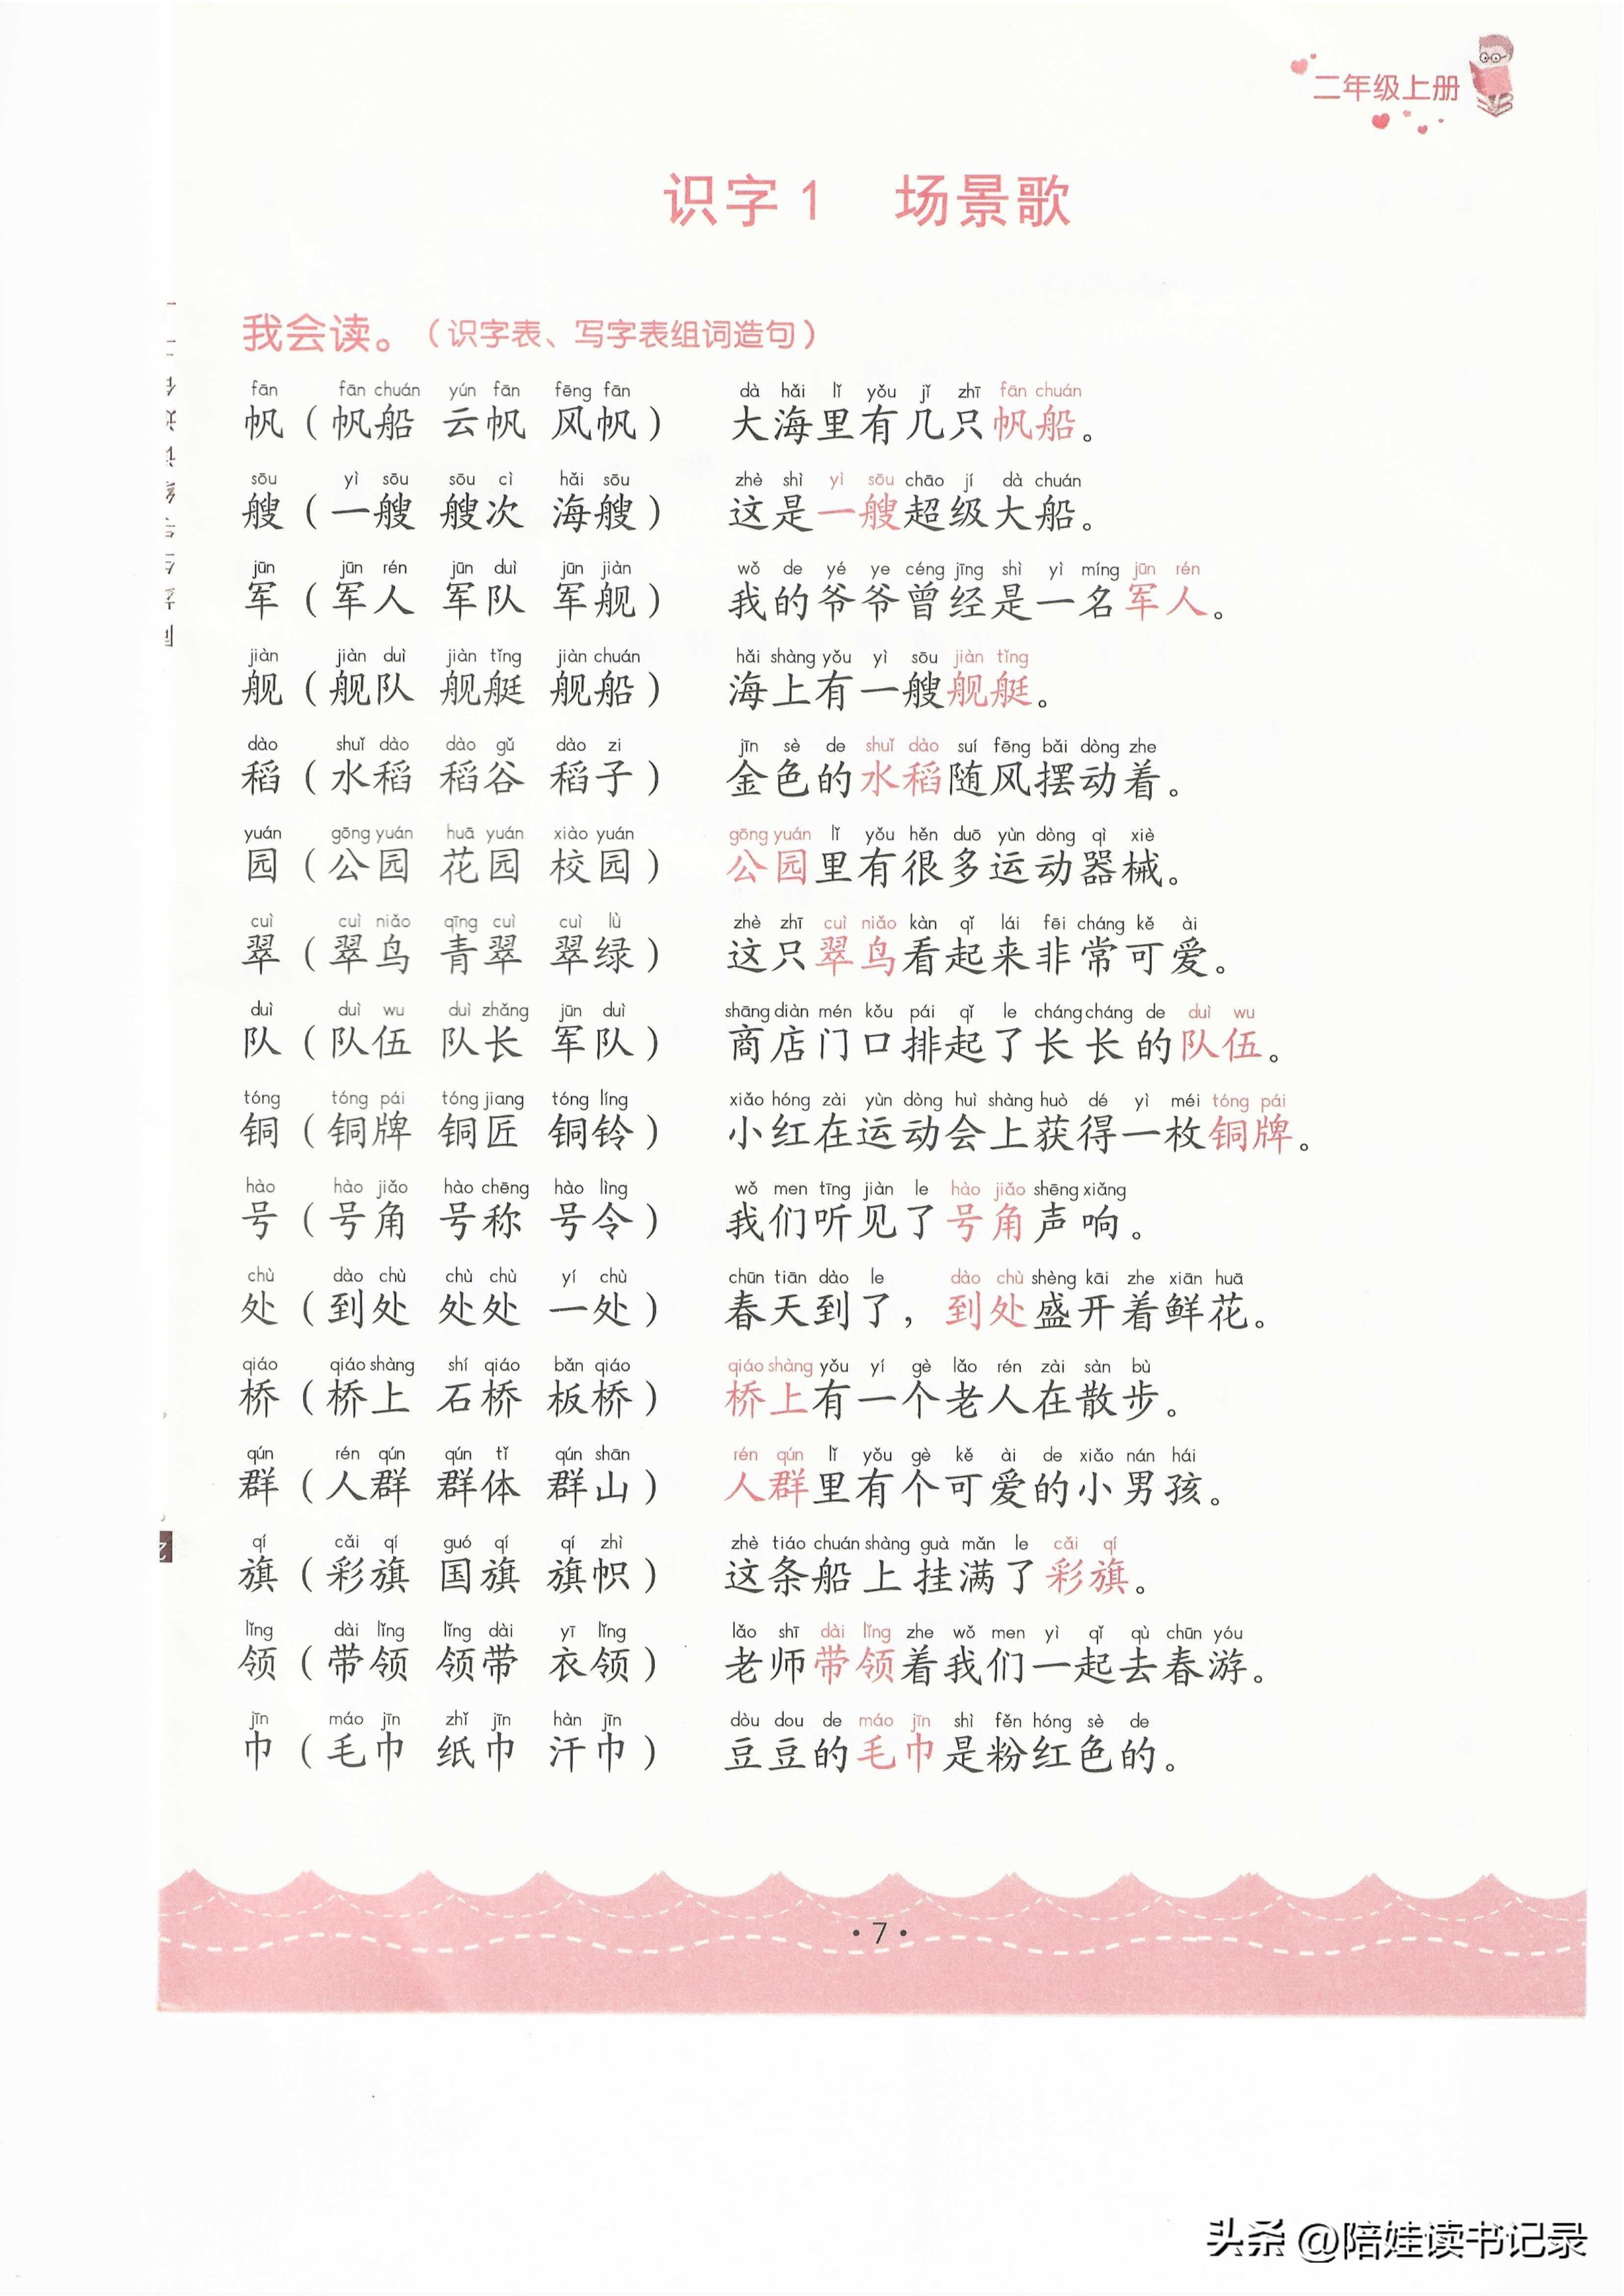 二年级上册
识字1 场景歌
我会读。（识字表、写字表组词造句）
fān fān chuán yún fān fēng fān dà hǎi lǐ yǒu jǐ zhī fān chuán
帆（帆船 云帆 风帆） 大海里有几只帆船。
sōu yì sōu sōu cì hǎi sōu zhè shì yì sōu chāo jí dà chuán
艘（一艘 艘次 海艘） 这是一艘超级大船。
jūn jūn rén jūn duì jūn jiàn wǒ de yé ye céng jīng shì yì míng jūn rén
军（军人 军队 军舰） 我的爷爷曾经是一名军人。
jiàn jiàn duì jiàn tǐng jiàn chuán hǎi shàng yǒu yì sōu jiàn tǐng
舰（舰队 舰艇 舰船） 海上有一艘舰艇。
dào shuǐ dào dào gǔ dào zi jīn sè de shuǐ dào suí fēng bǎi dòng zhe
稻（水稻 稻谷 稻子） 金色的水稻随风摆动着。
yuán gōng yuán huā yuán xiào yuán gōng yuán lǐ yǒu hěn duō yùn dòng qì xiè
园（公园 花园 校园） 公园里有很多运动器械。
cuì cuì niǎo qīng cuì cuì lǜ zhè zhī cuì niǎo kàn qǐ lái fēi cháng kě ài
翠（翠鸟 青翠 翠绿） 这只翠鸟看起来非常可爱。
duì duì wu duì zhǎng jūn duì shāng diàn mén kǒu pái qǐ le cháng cháng de duì wu
队（队伍 队长 军队） 商店门口排起了长长的队伍。
tóng tóng pái tóng jiang tóng líng xiǎo hóng zài yùn dòng huì shàng huò dé yì méi tóng pái
铜（铜牌 铜匠 铜铃） 小红在运动会上获得一枚铜牌。
hào hào jiǎo hào chēng hào lìng wǒ men tīng jiàn le hào jiǎo shēng xiǎng
号（号角 号称 号令） 我们听见了号角声响。
chù dào chù chù chù yí chù chūn tiān dào le dào chù shèng kāi zhe xiān huā
处（到处 处处 一处） 春天到了，到处盛开着鲜花。
qiáo qiáo shàng shí qiáo bǎn qiáo qiáo shàng yǒu yí gè lǎo rén zài sàn bù
桥（桥上 石桥 板桥） 桥上有一个老人在散步。
qún rén qún qún tǐ qún shān rén qún lǐ yǒu gè kě ài de xiǎo nán hái
群（人群 群体 群山） 人群里有个可爱的小男孩。
qí cǎi qí guó qí qí zhì zhè tiáo chuán shàng guà mǎn le cǎi qí
旗（彩旗 国旗 旗帜） 这条船上挂满了彩旗。
lǐng dài lǐng lǐng dài yī lǐng lǎo shī dài lǐng zhe wǒ men yì qǐ qù chūn yóu
领（带领 领带 衣领） 老师带领着我们一起去春游。
jīn máo jīn zhǐ jīn hàn jīn dòu dou de máo jīn shì fěn hóng sè de
巾（毛巾 纸巾 汗巾） 豆豆的毛巾是粉红色的。
·7·
头条 @陪娃读书记录